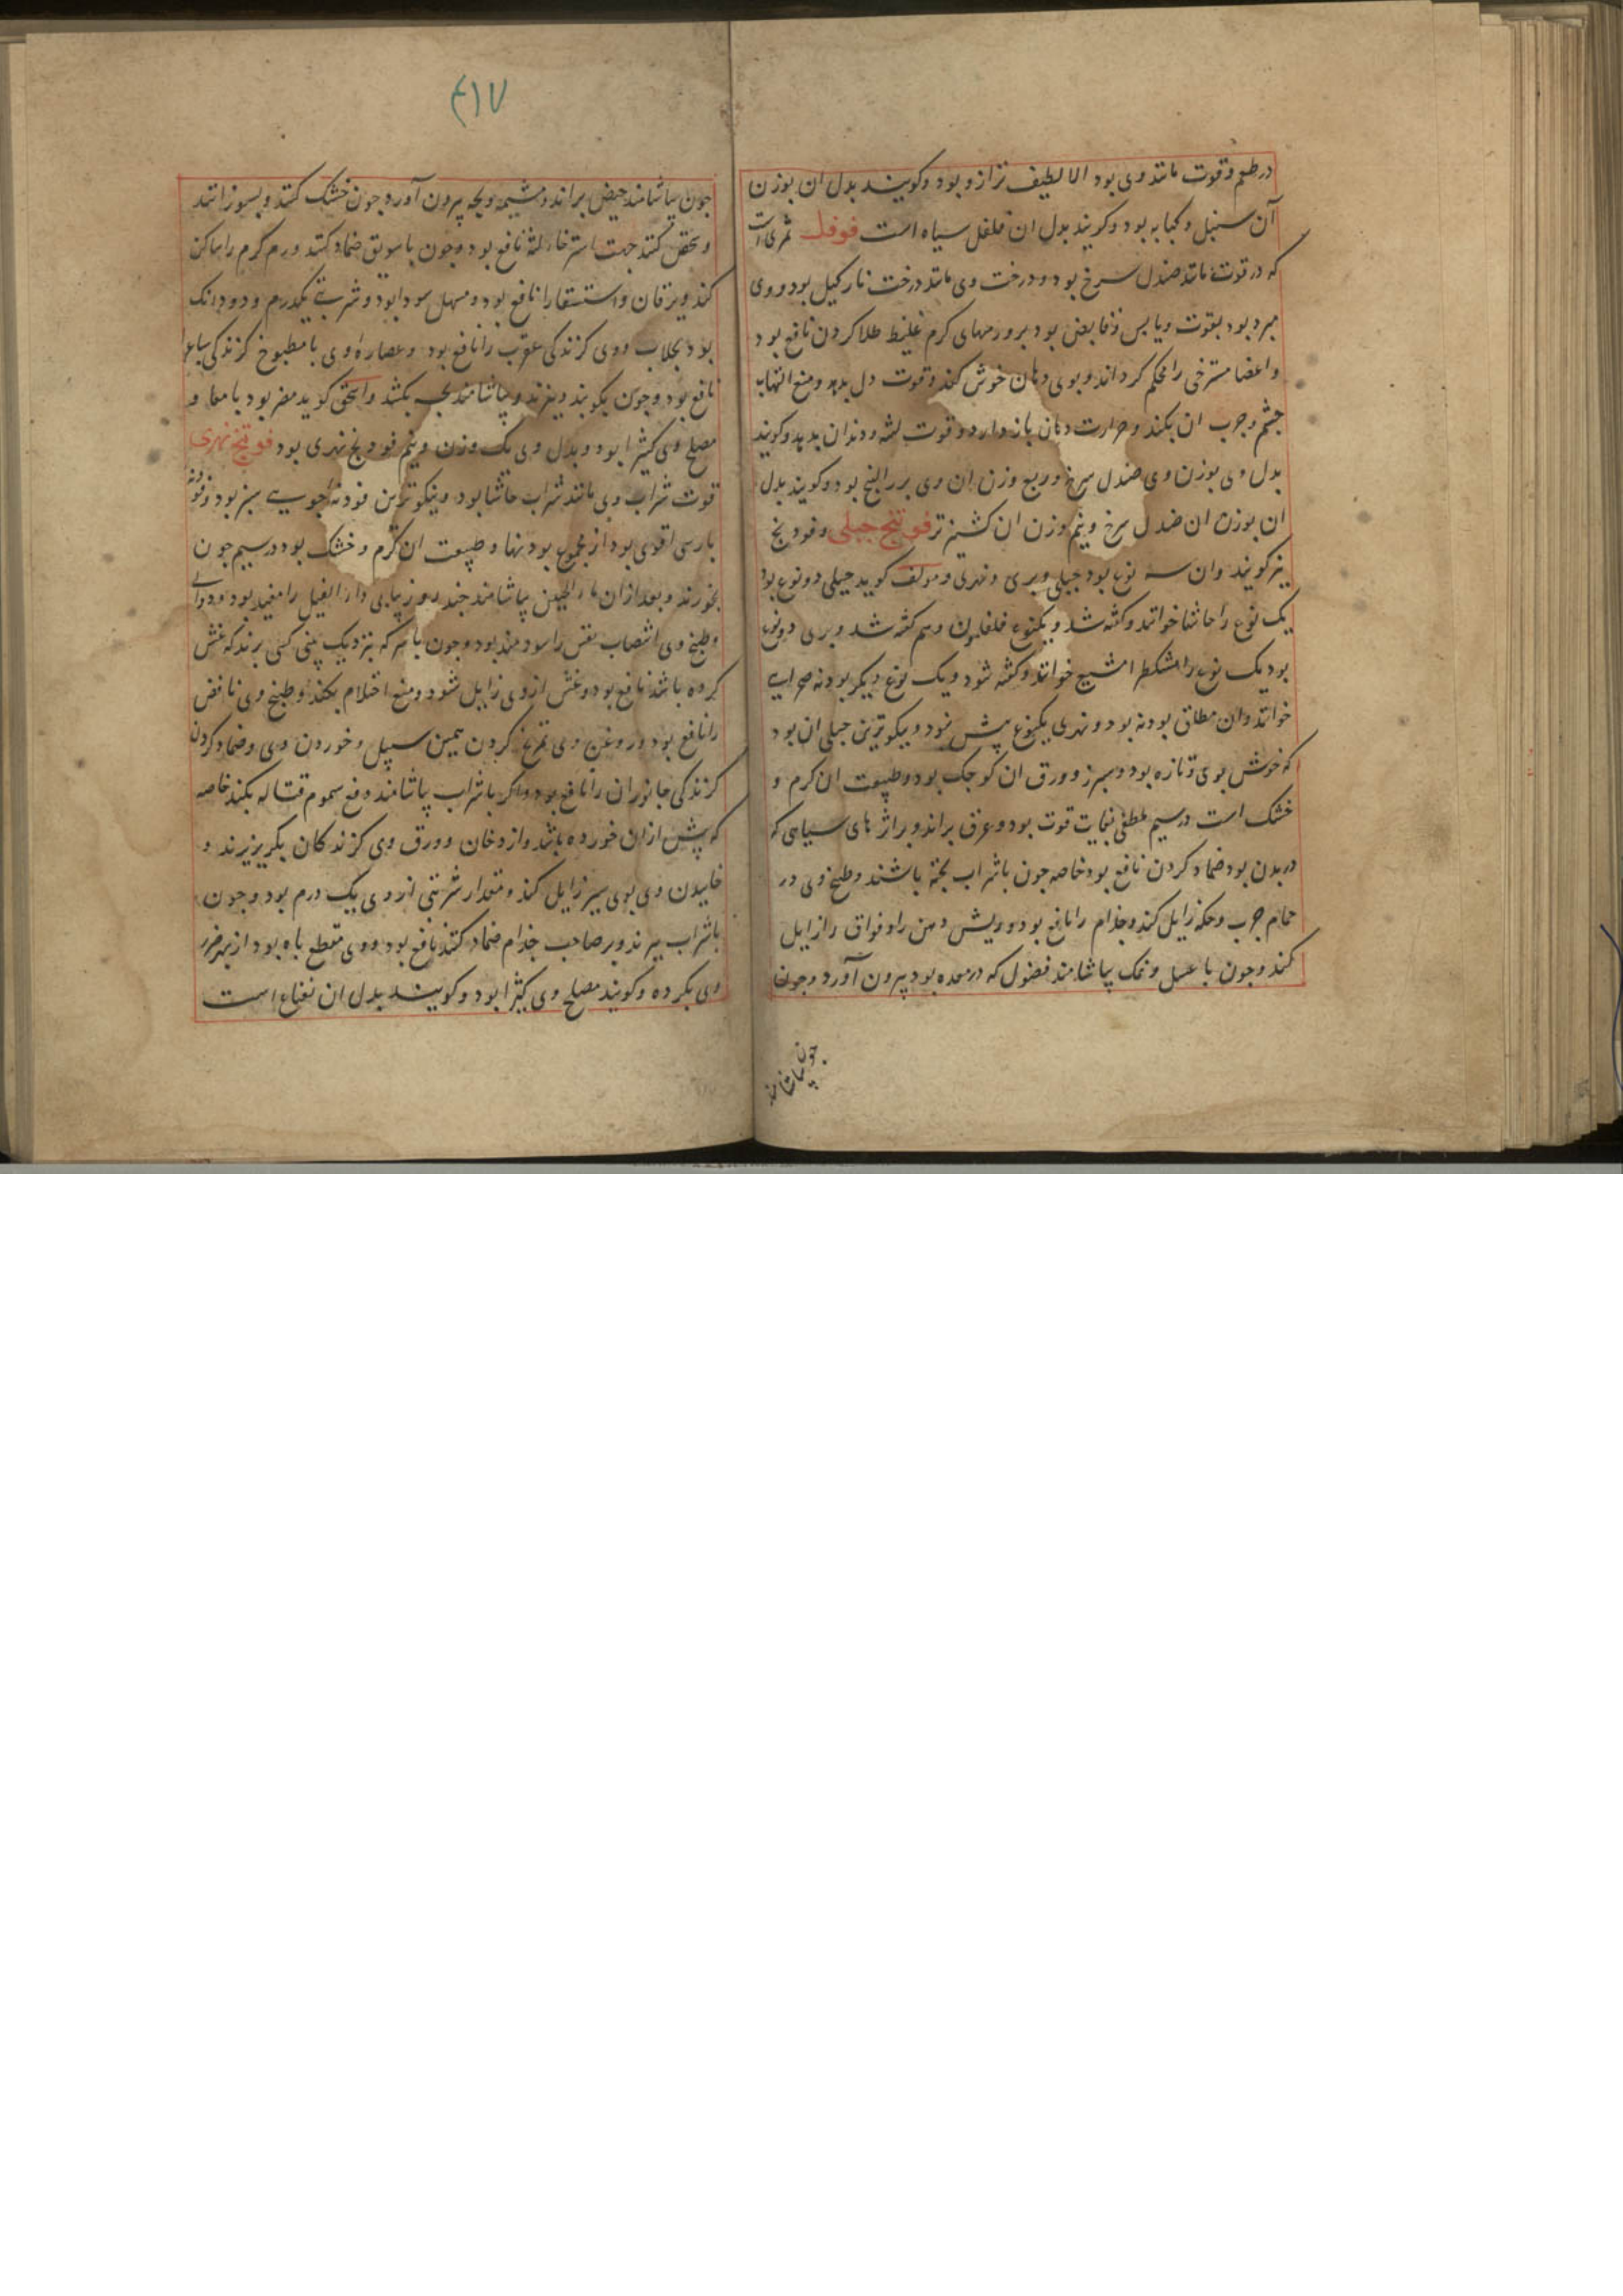 در طعم و قوت مانند وی بود الا لطیف تر ازو بود و کویند بدل ان بوزن
آن سنبل و کبابه بود و کویند بدل ان فلفل سیاه است فوفل ثمری است
که در قوت مانند صندل سرخ بود و درخت وی مانند درخت نارکیل بود و وی
مبرد بود بقوت و یابس و قابض بود بر ورمهای کرم غلیظ طلا کردن نافع بود
و اعضا مسترخی را محکم کرداند و بوی دهان خوش کند و قوت دل بدهد و منع التهاب
چشم و جرب ان بکند و حرارت دهان باز دارد و قوت لثه و دندان بدهد و کویند
بدل وی بوزن وی صندل سرخ و ربع وزن ان وی بزرالبنج بود و کویند بدل
ان بوزن ان صندل سرخ و نیم وزن ان کشنیز تر فوتنج جبلی و فودنج
نیز کویند و ان سه نوع بود جبلی و بری و نهری و مولف کوید جبلی دو نوع بود
یک نوع را حاشا خوانند و کفته شد و یکنوع فلفلمون و هم کفته شد و بری دو نوع
بود یک نوع را مشکطرامشیع خوانند و کفته شود و یک نوع دیکر بودنه صحرایی
خوانند و ان مطلق بودنه بود و نهری یکنوع پیش نبود و نیکوترین جبلی ان بود
که خوش بوی و تازه بود و سبز و ورق ان کوجک بود و طبیعت ان کرم و
خشک است در سیم ملطفی بغایت قوت بود و عرق براند و بر اثرهای سیاهی که
در بدن بود ضماد کردن نافع بود خاصه جون با شراب پخته باشند و طبخ وی در
حمام جرب و حکه زایل کند و جذام را نافع بود و ریش دهن را و فواق را زایل
کند و جون با عسل و نمک بیاشامند فضول که در معده بود بیرون آورد و جون
جون بیاشامند
۴۱۷
جون بیاشامند حیض براند و مشیمه و بچه بیرون آورد و جون خشک کنند و بسوزانند
و سحق کنند جهت استرخاء لثه نافع بود و جون با سویق ضماد کنند ورم کرم را ساکن
کند و یرقان و استسقا را نافع بود و مسهل سودا بود و شربتی یکدرم و دو دانک
بود بجلاب و وی کزندکی عقرب را نافع بود و عصاره وی با مطبوخ کزندکی سباع
نافع بود و جون بکوبند و بپزند و بیاشامند بچه بکشد و اسحق کوید مضر بود بامعا و
مصلح وی کثیرا بود و بدل وی یک وزن و نیم فودنج نهری بود فوتنج نهری
قوت شراب وی مانند شراب حاشا بود و نیکوترین فودنه جویی سبز بود و فودنه
پارسی اقوی بود از مجموع بودنها و طبیعت ان کرم و خشک بود در سیم جون
بخورند و بعد از ان ماء الجبن بیاشامند چند روز پیاپی داء الفیل را مفید بود و دوالی
و طبخ وی انتصاب نفس را سودمند بود و جون با سرکه بنزدیک بینی کسی برند که غش
کرده باشد نافع بود و غش از وی زایل شود و منع احتلام بکند و طبخ وی نافض
را نافع بود و روغن وی تمریخ کردن همین سبیل و خوردن وی و ضماد کردن
کزندکی جانوران را نافع بود و اکر با شراب بیاشامند دفع سموم قتاله بکند خاصه
که پیش از ان خورده باشد و از دخان و ورق وی کزندکان بکریزند و
خاییدن وی بوی سیر زایل کند و مقدار شربتی از وی یک درم بود و جون
با شراب بپزند و بر صاحب جذام ضماد کنند نافع بود و وی مقطع باه بود از بهر ضرر
وی بکرده و کویند مصلح وی کثیرا بود و کویند بدل ان نعناع است